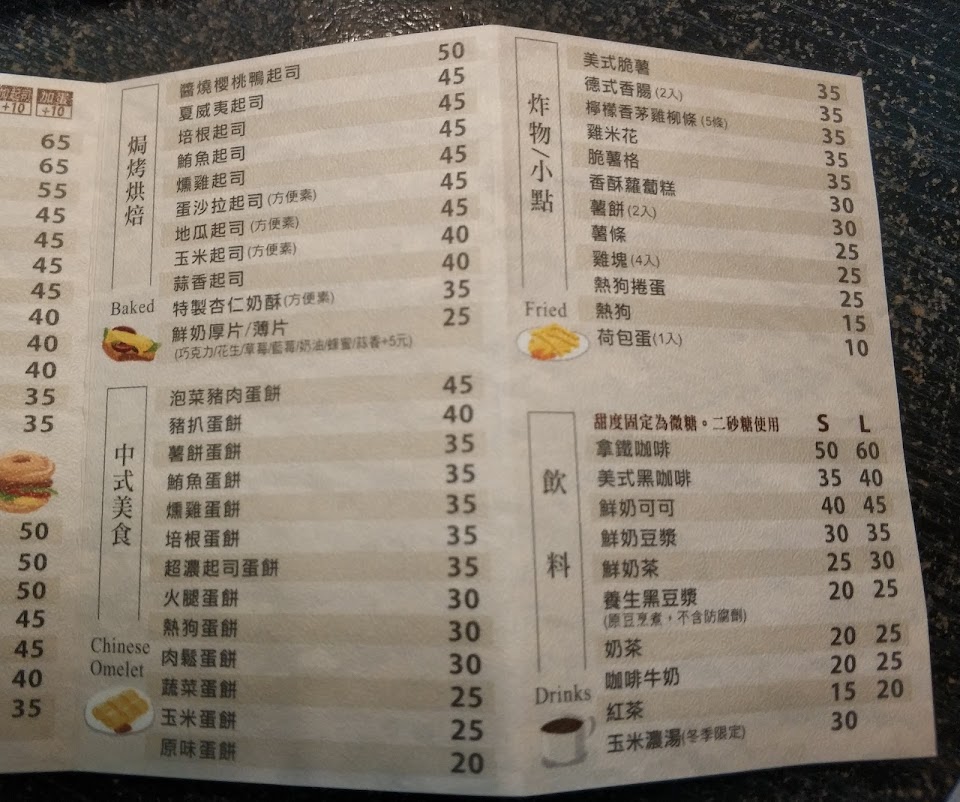 加起司 +10 加蛋 +10
65
65
55
45
45
45
45
40
40
40
35
35
50
50
50
45
45
40
35
焗烤烘焙
Baked
醬燒櫻桃鴨起司 50
夏威夷起司 45
培根起司 45
鮪魚起司 45
燻雞起司 45
蛋沙拉起司(方便素) 45
地瓜起司(方便素) 45
玉米起司(方便素) 40
蒜香起司 40
特製杏仁奶酥(方便素) 35
鮮奶厚片/薄片 25
(巧克力/花生/草莓/藍莓/奶油/蜂蜜/蒜香+5元)
中式美食
Chinese
Omelet
泡菜豬肉蛋餅 45
豬扒蛋餅 40
薯餅蛋餅 35
鮪魚蛋餅 35
燻雞蛋餅 35
培根蛋餅 35
超濃起司蛋餅 35
火腿蛋餅 30
熱狗蛋餅 30
肉鬆蛋餅 30
蔬菜蛋餅 25
玉米蛋餅 25
原味蛋餅 20
炸物/小點
Fried
美式脆薯 35
德式香腸(2入) 35
檸檬香茅雞柳條(5條) 35
雞米花 35
脆薯格 35
香酥蘿蔔糕 30
薯餅(2入) 30
薯條 25
雞塊(4入) 25
熱狗捲蛋 25
熱狗 15
荷包蛋(1入) 10
飲料
Drinks
甜度固定為微糖。二砂糖使用 S L
拿鐵咖啡 50 60
美式黑咖啡 35 40
鮮奶可可 40 45
鮮奶豆漿 30 35
鮮奶茶 25 30
養生黑豆漿 20 25
(原豆烹煮，不含防腐劑)
奶茶 20 25
咖啡牛奶 20 25
紅茶 15 20
玉米濃湯(冬季限定) 30